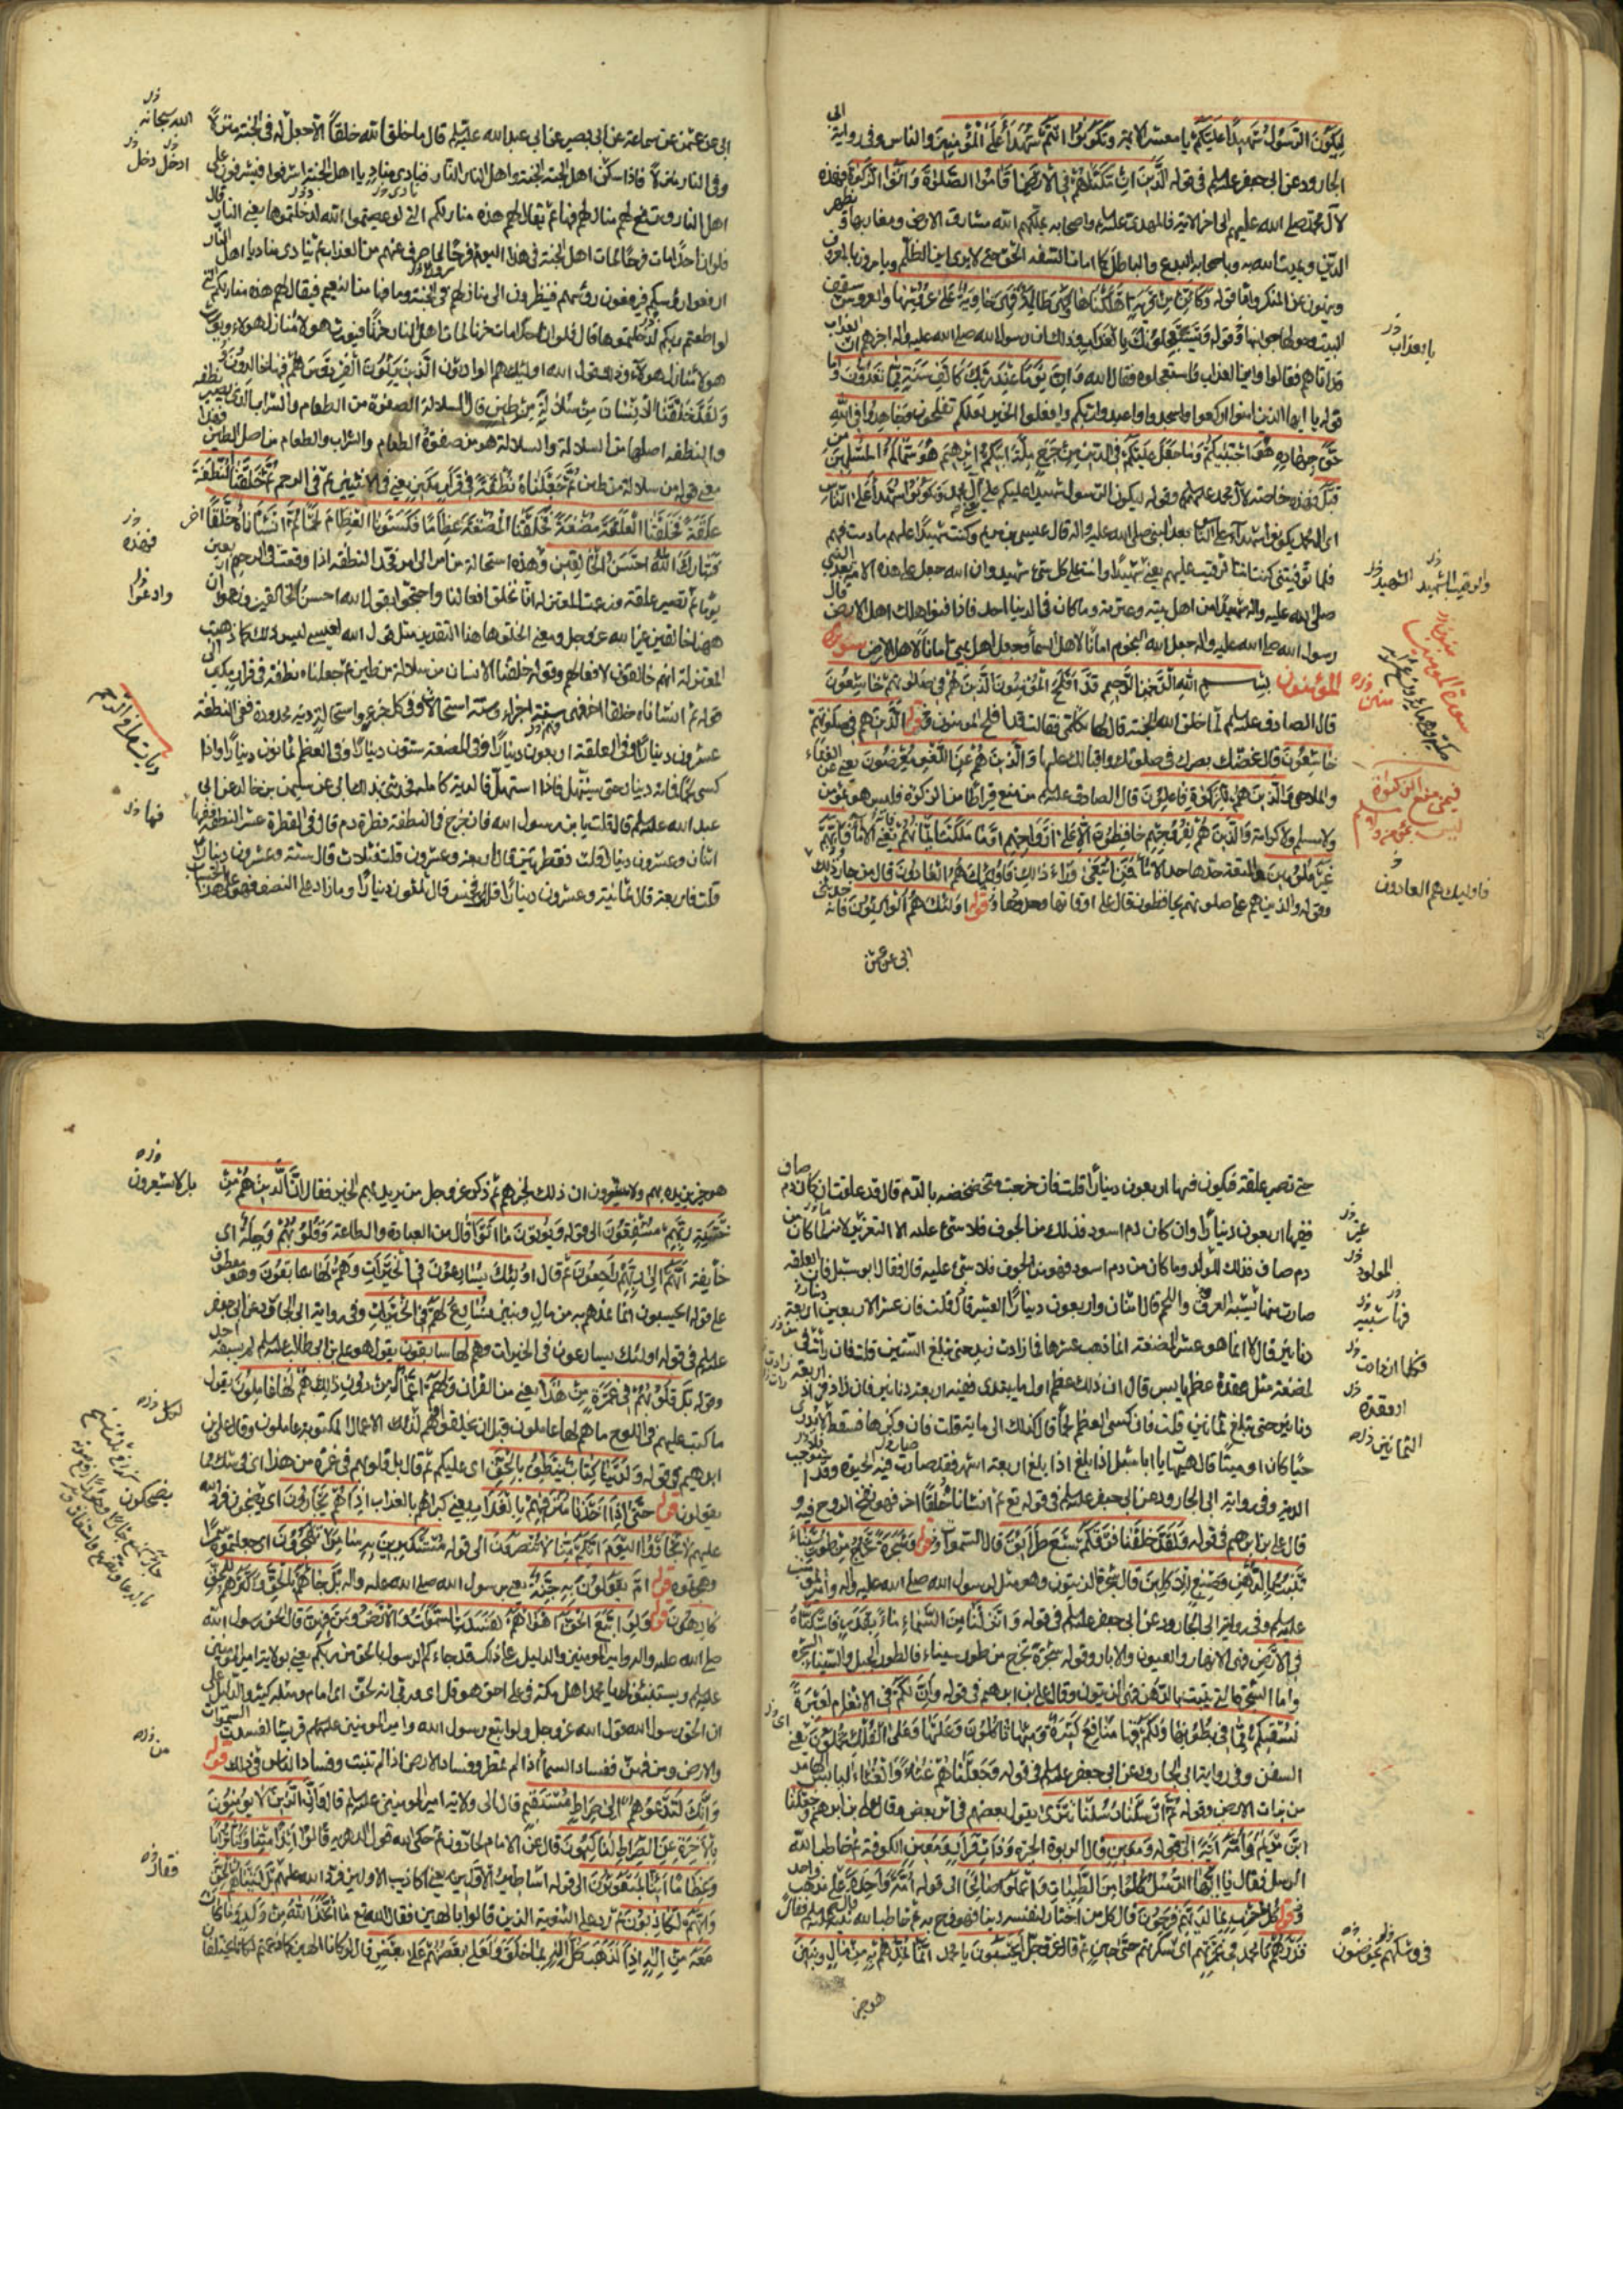 ليكون الرسول شهيدا عليكم يا معشر الائمة وتكونوا انتم شهداء على المؤمنين والناس وفي رواية ابي
الجارود عن ابي جعفر عليه السلم في قوله الذين ان مكناهم في الارض اقاموا الصلوة واتوا الزكوة وهذه
لآل محمد صلى الله عليهم الى اخر الاية فالمهدي عليه السلم واصحابه يملكهم الله مشارق الارض ومغاربها ويظهر
الدين ويميت الله به وباصحابه البدع والباطل كما امات السفه الحق حتى لا يرى اين الظلم ويامرون بالمعروف
وينهون عن المنكر واما قوله وكاين من قرية اهلكناها وهي ظالمة فهي خاوية على عروشها والعروش سقف
البيت وحولها وجوانبها وقوله ويستعجلونك بالعذاب وذلك ان رسول الله صلى الله عليه واله اخبرهم ان العذاب
قد اتاهم فقالوا واين العذاب فاستعجلوه فقال الله وان يوما عند ربك كالف سنة مما تعدون واما
قوله يا ايها الذين امنوا اركعوا واسجدوا واعبدوا ربكم وافعلوا الخير لعلكم تفلحون وجاهدوا في الله
حق جهاده هو اجتبيكم وما جعل عليكم في الدين من حرج ملة ابيكم ابرهيم هو سماكم المسلمين من
قبل فهذه خاصة لآل محمد عليهم السلم وقوله ليكون الرسول شهيدا عليكم على آل محمد وتكونوا شهداء على الناس
اي آل محمد يكونوا شهداء على الناس بعد النبي صلى الله عليه واله قال عيسى بن مريم وكنت عليهم شهيدا ما دمت فيهم
فلما توفيتني كنت انت الرقيب عليهم يعني شهيدا وانت على كل شيء شهيد وان الله جعل على هذه الامة بعد النبي
صلى الله عليه واله شهيدا من اهل بيته وعترته وما كان في الدنيا احد فاذا فنوا هلك اهل الارض قال
رسول الله صلى الله عليه واله جعل الله النجوم امانا لاهل السماء وجعل اهل بيتي امانا لاهل الارض سورة
المؤمنون بسم الله الرحمن الرحيم قد افلح المؤمنون الذين هم في صلوتهم خاشعون
قال الصادق عليه السلم لما خلق الله الجنة قال لها تكلمي فقالت قد افلح المؤمنون قوله الذين هم في صلوتهم
خاشعون قال غضك بصرك في صلوتك واقبالك عليها والذين هم عن اللغو معرضون يعني عن الغناء
والملاهي والذين هم للزكوة فاعلون قال الصادق عليه السلم من منع قيراطا من الزكوة فليس هو بمؤمن
ولا مسلم ولا كرامة والذين هم لفروجهم حافظون الا على ازواجهم او ما ملكت ايمانهم يعني الاماء فانهم
غير ملومين والمتعة حدها حد الاماء فمن ابتغى وراء ذلك فاولئك هم العادون قال من جاوز ذلك
وقوله والذين هم على صلوتهم يحافظون قال على اوقاتها وحدودها وقوله اولئك هم الوارثون فانه حدثني
ابي عن عثمن
بالعذاب
الشهيد
سورة المؤمنين
فيمن منع الزكوة
فاوليك هم العادون
ابي عن عثمن عن سماعة عن ابي بصير عن ابي عبد الله عليه السلم قال ما خلق الله خلقا الا جعل له في الجنة منزلا
وفي النار منزلا فاذا سكن اهل الجنة الجنة واهل النار النار فينادي مناد يا اهل الجنة اشرفوا فيشرفون على
اهل النار وترفع لهم منازلهم فيها ثم يقال لهم هذه منازلكم التي لو عصيتم الله لدخلتموها يعني النار قال
فلو ان احدا مات فرحا لمات اهل الجنة في هذا اليوم فرحا لما صرف عنهم من العذاب ثم ينادى مناد يا اهل النار
ارفعوا رؤسكم فيرفعون رؤسهم فينظرون الى منازلهم في الجنة وما فيها من النعيم فيقال لهم هذه منازلكم التي
لو اطعتم ربكم لدخلتموها قال فلو ان احدا مات حزنا لمات اهل النار حزنا فيورث هولاء منازل هولاء ويورث
هولاء منازل هولاء وذلك قول الله اوليك هم الوارثون الذين يرثون الفردوس هم فيها خالدون
ولقد خلقنا الانسان من سلالة من طين قال السلالة الصفوة من الطعام والشراب الذي يصير نطفة
والنطفة اصلها من السلالة والسلالة هو من صفوة الطعام والشراب والطعام من اصل الطين فهذا
معنى قوله من سلالة من طين ثم جعلناه نطفة في قرار مكين يعني في الانثيين ثم في الرحم ثم خلقنا النطفة
علقة فخلقنا العلقة مضغة فخلقنا المضغة عظاما فكسونا العظام لحما ثم انشاناه خلقا اخر
فتبارك الله احسن الخالقين وهذه استحالة من امر الى امر فحد النطفة اذا وقعت في الرحم اربعين
يوما ثم تصير علقة وزعمت المعتزلة انا نخلق افعالنا واحتجوا بقول الله احسن الخالقين وزعموا ان
ههنا خالقين غير الله عز وجل ومعنى الخلق هاهنا التقدير مثل قول الله لعيسى ليس ذلك كما ذهبت
المعتزلة انهم خالقون لافعالهم وقوله خلقنا الانسان من سلالة من طين ثم جعلناه نطفة في قرار مكين الى
قوله ثم انشاناه خلقا اخر فهي ستة اجزاء وستة استحالات وفي كل جزء واستحالة دية محدودة ففي النطفة
عشرون دينارا وفي العلقة اربعون دينارا وفي المضغة ستون دينارا وفي العظم ثمانون دينارا واذا
كسي لحما فمائة دينار حتى يستهل فاذا استهل فالدية كاملة فحدثني بذلك ابي عن سليمن بن خالد عن ابي
عبد الله عليه السلم قال قلت يا بن رسول الله فان خرج في النطفة قطرة دم قال في القطرة عشر النطفة ففيها
اثنان وعشرون دينارا قلت فقطرتين قال اربعة وعشرون قلت فثلاث قال ستة وعشرون دينارا
قلت فاربعة قال ثمانية وعشرون دينارا قلت فخمس قال ثلثون دينارا وما زاد على النصف فهو على هذا الحساب
الله سبحانه
ادخل دخل
فهذه
وادعوا
فيها
حتى تصير علقة فيكون فيها اربعون دينارا قلت فان خرجت متخضخضة بالدم قال قد علقت ان كان دم صاف
ففيها اربعون دينارا وان كان دم اسود فذلك من الجوف فلا شيء عليه الا التعزير لانه ما كان من
دم صاف فذلك للولد وما كان من دم اسود فهو من الجوف فلا شيء عليه قال فقال ابو شبل فان العلقة
صارت فيها شبيه العروق واللحم قال اثنان واربعون دينارا العشر قال قلت فان عشر الاربعين اربعة
دنانير قال لا انما هو عشر المضغة انما ذهب عشرها فكلما زادت زيد حتى تبلغ الستين قلت فان رأت في
المضغة مثل عقدة عظم يابس قال ان ذلك عظم اول ما يبتدي ففيه اربعة دنانير فان زاد فزاد اربعة
دنانير حتى تبلغ ثمانين قلت فان كسي العظم لحما قال كذلك الى ماية قلت فان وكزها فسقط لا يدري
حيا كان او ميتا قال هيهات يا ابا شبل اذا بلغ اربعة اشهر فقد صارت فيه الحيوة وقد استوجب
الدية وفي رواية ابي الجارود عن ابي جعفر عليه السلم في قوله ثم انشاناه خلقا اخر فهو نفخ الروح فيه و
قال علي بن ابرهيم في قوله ولقد خلقنا فوقكم سبع طرايق قال السموات قوله وشجرة تخرج من طور سيناء
تنبت بالدهن وصبغ للاكلين قال شجرة الزيتون وهو مثل لرسول الله صلى الله عليه واله وامير المؤمنين
عليه السلم وفي رواية ابي الجارود عن ابي جعفر عليه السلم في قوله وانزلنا من السماء ماء بقدر فاسكناه
في الارض فهي الانهار والعيون والابار وقوله شجرة تخرج من طور سيناء فالطور الجبل والسيناء الشجرة
واما الشجرة التي تنبت بالدهن فهي الزيتون وقال علي بن ابرهيم في قوله وان لكم في الانعام لعبرة
نسقيكم مما في بطونها ولكم فيها منافع كثيرة ومنها تاكلون وعليها وعلى الفلك تحملون يعني
السفن وفي رواية ابي الجارود عن ابي جعفر عليه السلم في قوله فجعلناهم غثاء والغثاء اليابس الهامد
من نبات الارض وقوله ثم ارسلنا رسلنا تترى يقول بعضهم في اثر بعض وقال علي بن ابرهم وجعلنا
ابن مريم وامه اية الى قوله ومعين قال الربوة الحيرة وذات قرار ومعين الكوفة ثم خاطب الله
الرسل فقال يا ايها الرسل كلوا من الطيبات واعملوا صالحا الى قوله امة واحدة على مذهب واحد
وقوله كل حزب بما لديهم فرحون قال كل من اختار لنفسه دينا فهو فرح به ثم خاطب الله نبيه فقال
فذرهم يا محمد في غمرتهم اي سكرتهم حتى حين ثم قال عز وجل ايحسبون يا محمد انما نمدهم به من مال وبنين
هو خير
غير
المولود
فيها شبيه
فكلما ازدادت
او عقدة
الثمانين
هو خير نريده بهم ولا يشعرون ان ذلك لخير هم ثم ذكر عز وجل من يريد بهم الخير فقال ان الذين هم من
خشية ربهم مشفقون الى قوله ويؤتون ما اتوا قال من العبادة والطاعة وقلوبهم وجلة اي
خايفة انهم الى ربهم راجعون ثم قال اولئك يسارعون في الخيرات وهم لها سابقون وهو معطوف
على قوله ايحسبون انما نمدهم به من مال وبنين نسارع لهم في الخيرات وفي رواية ابي الجارود عن ابي جعفر
عليه السلم في قوله اولئك يسارعون في الخيرات وهم لها سابقون يقول هو علي بن ابي طالب عليه السلم لم يسبقه احد
وقوله بل قلوبهم في غمرة من هذا يعني من القران ولهم اعمال من دون ذلك هم لها عاملون يقول
ما كتب عليهم في اللوح ما هم لها عاملون قبل ان يخلقوا هم لذلك الاعمال المكتوبة عاملون وقال علي بن
ابرهيم في قوله ولدينا كتاب ينطق بالحق اي عليكم ثم قال بل قلوبهم في غمرة من هذا اي في شك مما
يقولون قوله حتى اذا اخذنا مترفيهم بالعذاب يعني كبراءهم بالعذاب اذا هم يجأرون اي يضجون فرد الله
عليهم لا تجأروا اليوم انكم منا لا تنصرون الى قوله مستكبرين به سامرا تهجرون اي جعلتموه سمرا
وهجرتموه قوله ام يقولون به جنة يعني برسول الله صلى الله عليه واله بل جاءهم بالحق واكثرهم للحق
كارهون قوله ولو اتبع الحق اهواءهم لفسدت السموات والارض ومن فيهن قال الحق رسول الله
صلى الله عليه واله وامير المؤمنين والدليل على ذلك قد جاءكم الرسول بالحق من ربكم يعني بولاية امير المؤمنين
عليه السلم ويستنبئونك يا محمد اهل مكة في علي احق هو قل اي وربي انه لحق اي امام ومثله كثير والدليل على
ان الحق رسول الله قول الله عز وجل ولو اتبع رسول الله وامير المؤمنين عليهما السلم قريشا لفسدت السموات
والارض ومن فيهن ففساد السماء اذا لم تمطر وفساد الارض اذا لم تنبت وفساد الناس في ذلك قوله
وانك لتدعوهم الى صراط مستقيم قال الى ولاية امير المؤمنين عليه السلم قال وان الذين لا يؤمنون
بالاخرة عن الصراط لناكبون قال عن الامام لحادون ثم حكى الله قول الدهرية قالوا ائذا متنا وكنا ترابا
وعظاما ائنا لمبعوثون الى قوله اساطير الاولين يعني اكاذيب الاولين فرد الله عليهم بل اتيناهم بالحق
وانهم لكاذبون ثم رد على الثنوية الذين قالوا بالهين فقال الله تعالى ما اتخذ الله من ولد وما كان
معه من اله اذا لذهب كل اله بما خلق ولعلى بعضهم على بعض قال لو كانا الهين كما زعمتم لكانا يختلفان
بل لا يشعرون
يضحكون
من
فقال